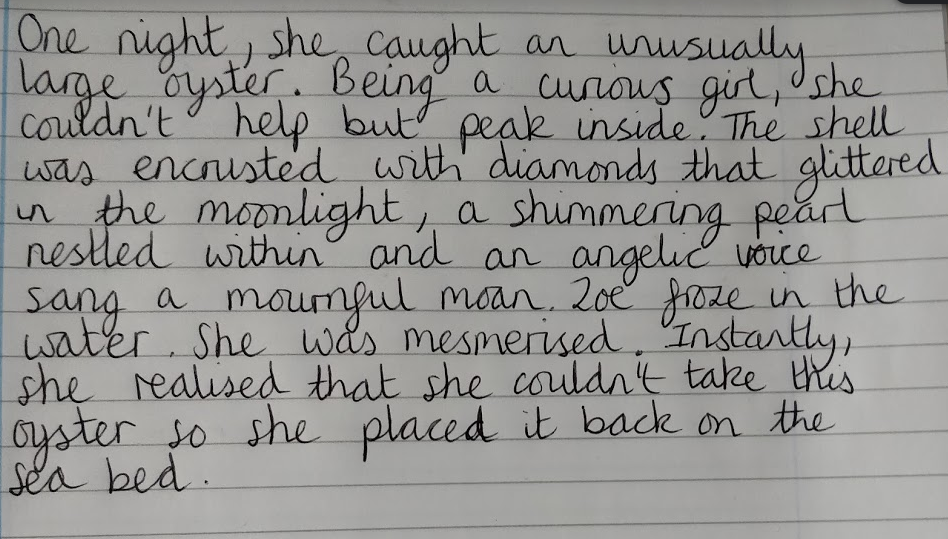 One night, she caught an unusually
large oyster. Being a curious girl, she
couldn't help but peak inside. The shell
was encrusted with diamonds that glittered
in the moonlight, a shimmering pearl
nestled within and an angelic voice
sang a mournful moan. Zoe froze in the
water. She was mesmerised. Instantly,
she realised that she couldn't take this
oyster so she placed it back on the
sea bed.